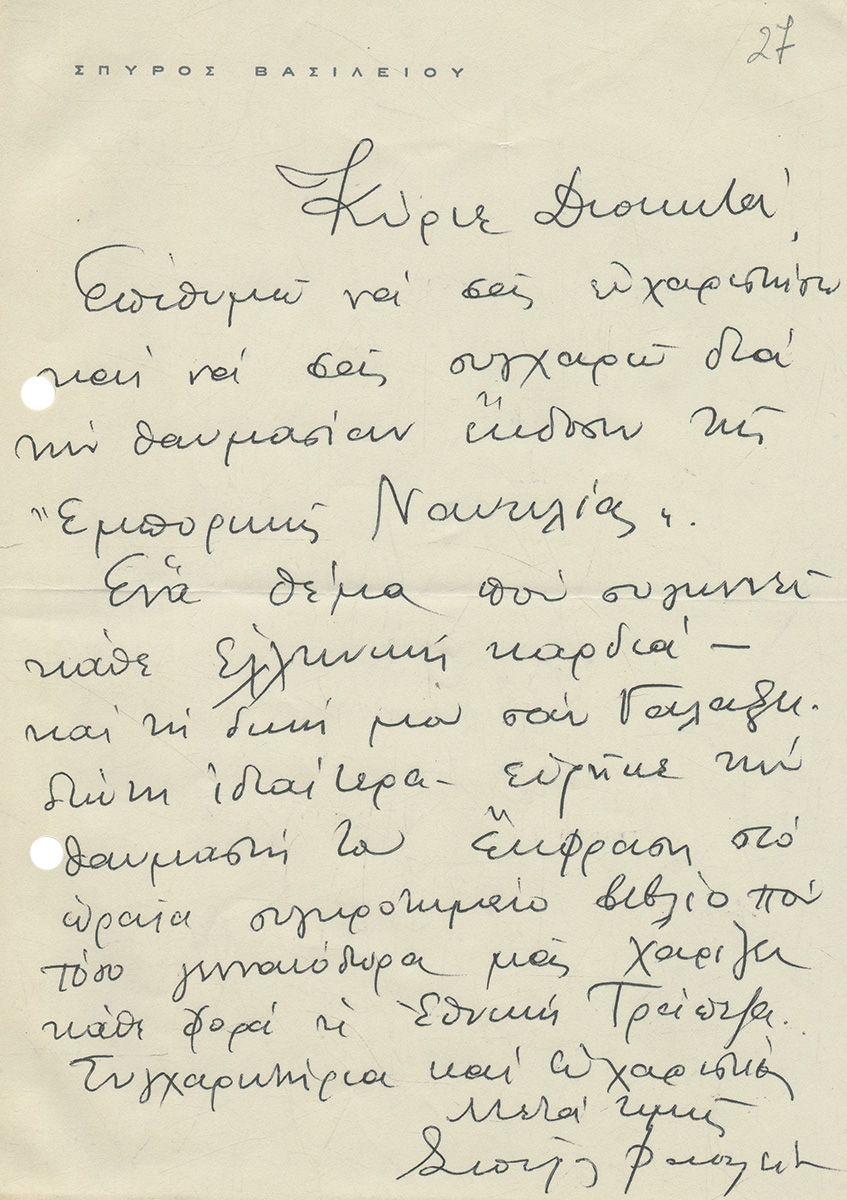 27
ΣΠΥΡΟΣ ΒΑΣΙΛΕΙΟΥ
Κύριε Διοικητά,
Ἐπιθυμῶ νά σᾶς εὐχαριστήσω
καί νά σᾶς συγχαρῶ διά
τήν θαυμασίαν ἔκδοσιν τῆς
"Εμπορικῆς Ναυτιλίας".
Ἕνα θέμα πού συγκινεῖ
κάθε ἑλληνική καρδιά —
καί τή δική μου σάν Γαλαξι-
διώτη ἰδιαίτερα — εὑρῆκε τήν
θαυμαστή του ἔκφραση στό
ὡραῖα συγκροτημένο βιβλίο πού
τόσο γενναιόδωρα μᾶς χαρίζει
κάθε φορά ἡ Ἐθνική Τράπεζα.
Συγχαρητήρια καί εὐχαριστίες
Μετά τιμῆς